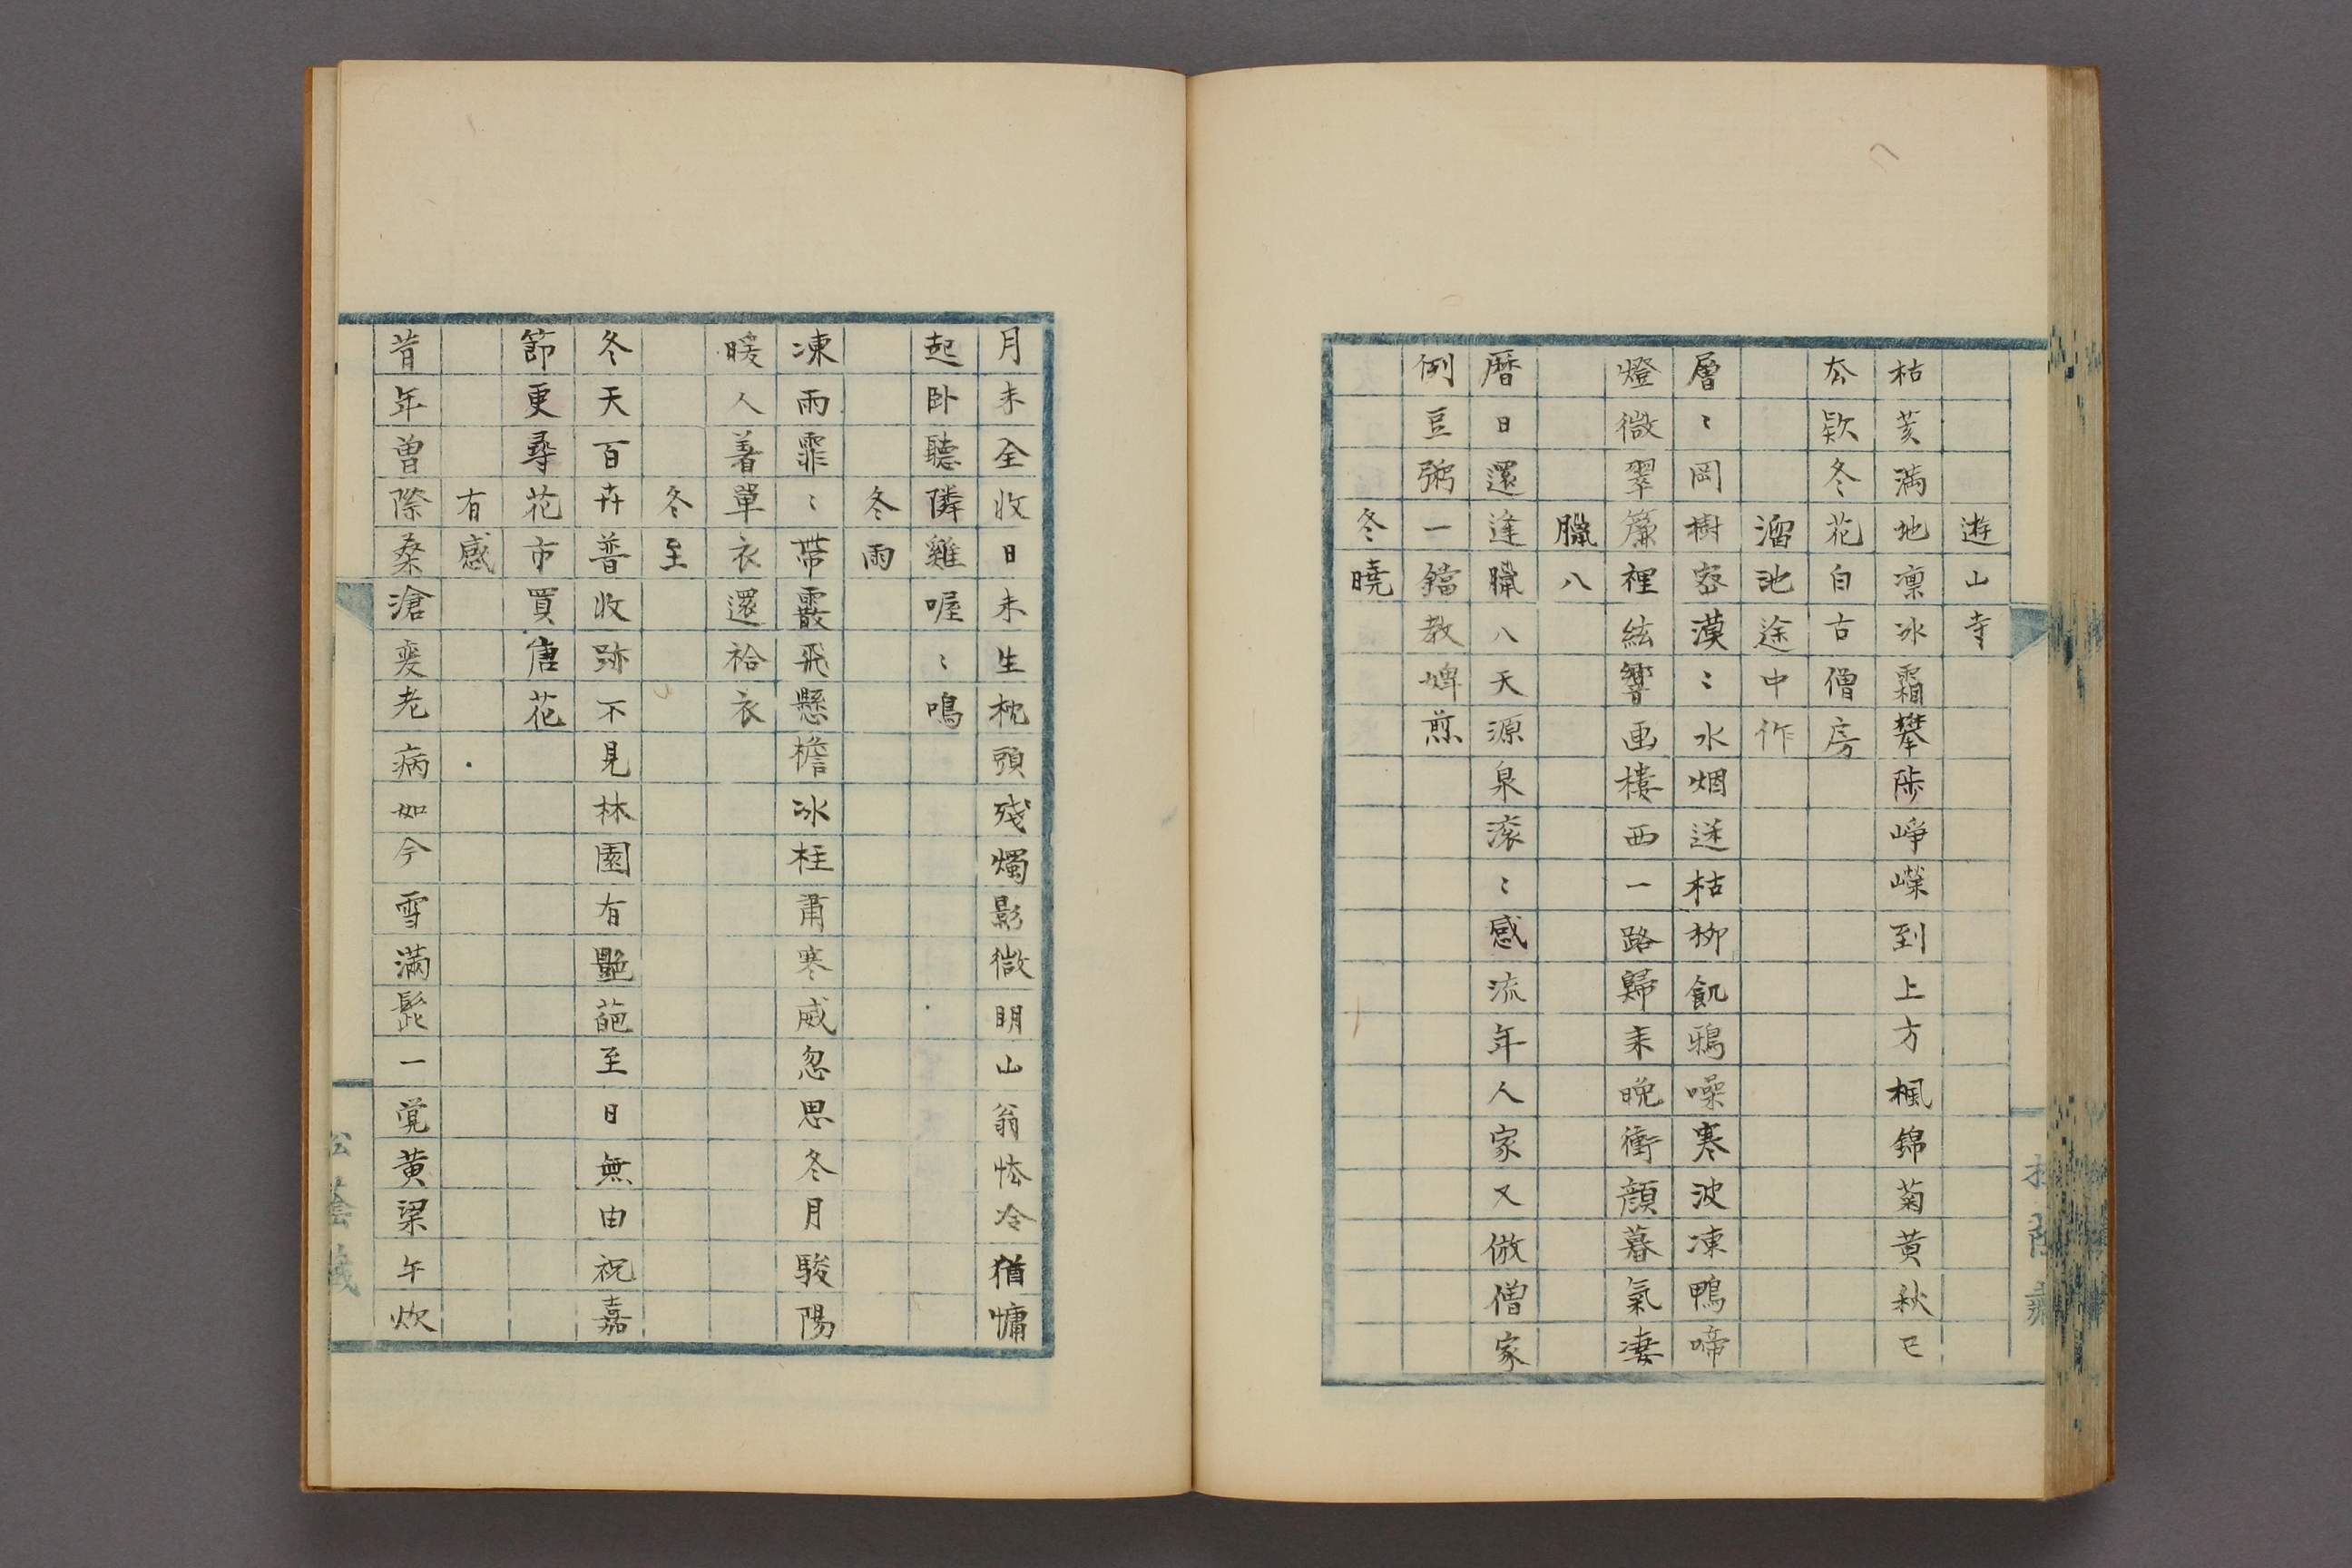 遊山寺
枯荄満地凛冰霜攀陟崢嶸到上方楓錦菊黄秋已
冬花自古僧房
溜池途中作
層〻岡樹寒漠〻水烟迷枯柳飢鴉噪寒波凍鴨啼
燈微翠簾裡絃響画樓西一路歸来晩衝顔暮氣凄
臘八
暦日還逢臘八天源泉滚〻感流年人家又倣僧家
例豆粥一鐺教婢煎
冬曉
月未全收日未生枕頭殘燭影微明山翁怯冷猶慵
起卧聽隣雞喔〻鳴
冬雨
凍雨霏〻帶霰飛懸檐冰柱肅寒威忽思冬月駿陽
暖人著單衣還袷衣
冬至
冬天百卉普收跡不見林園有艶葩至日無由祝嘉
節更尋花市買唐花
有感
昔年曽際桑滄変老病如今雪満髭一覚黄粱午炊
松蔭蔵